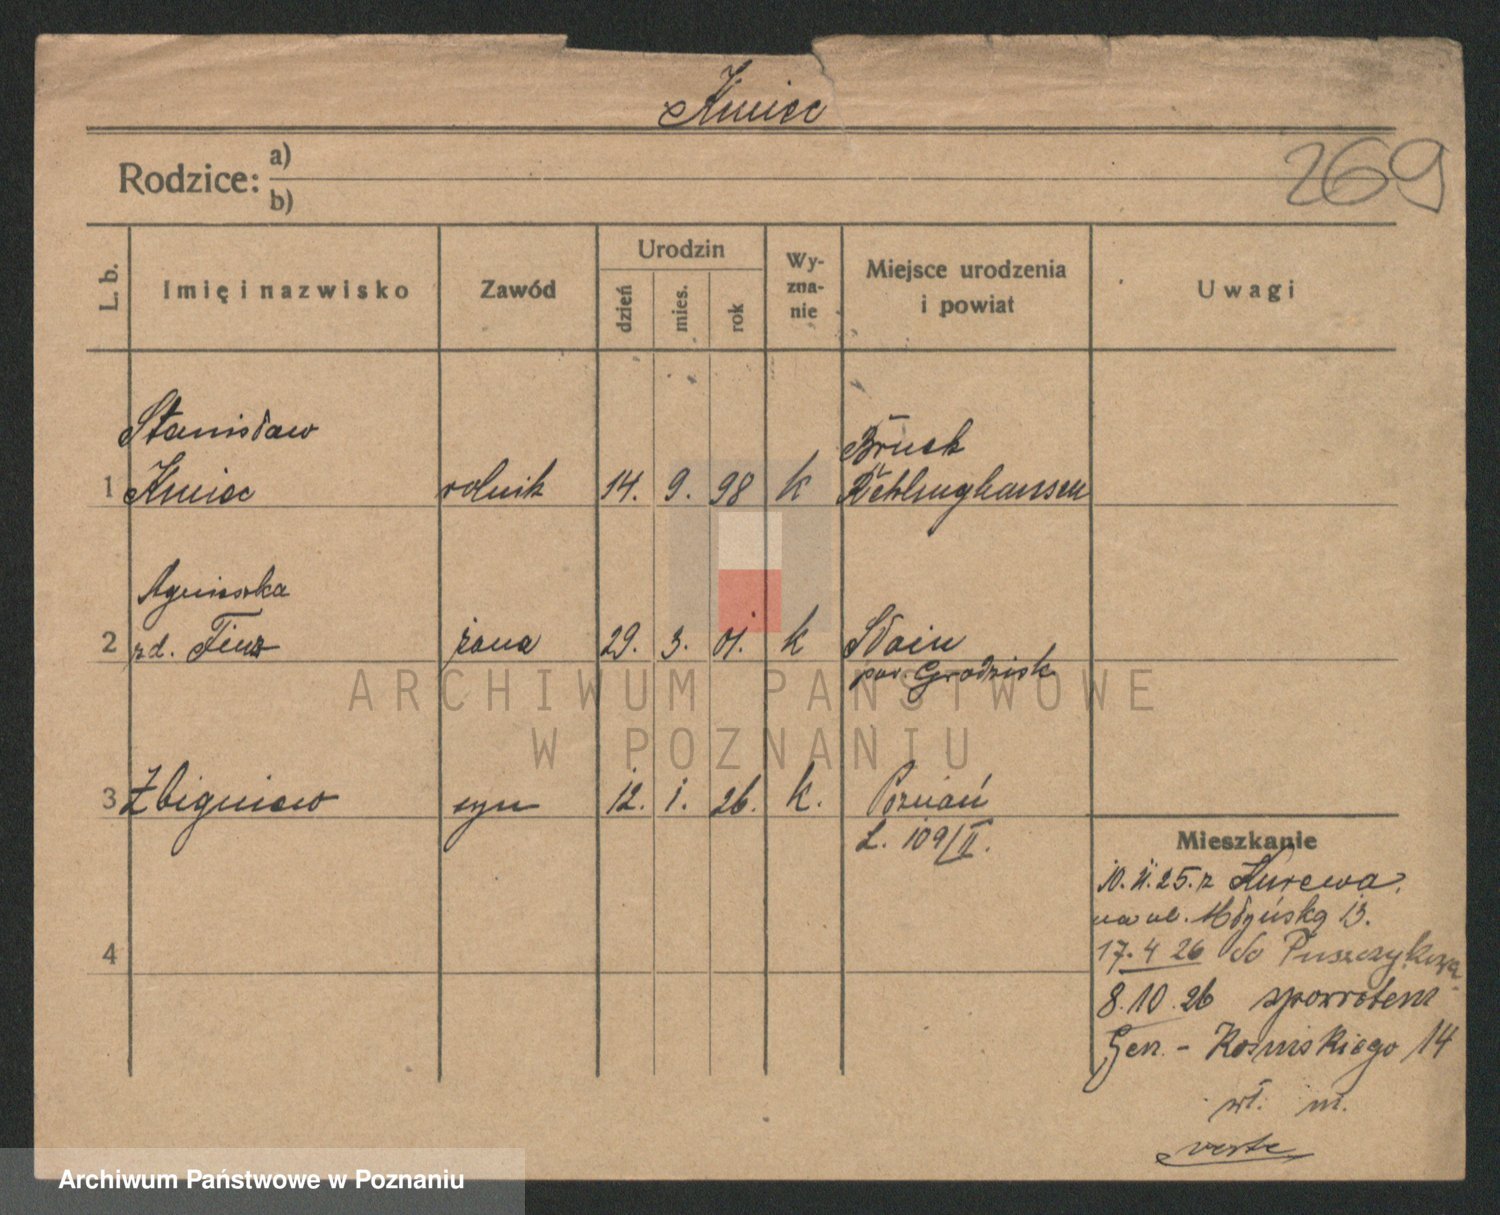 Kmiec
269
Rodzice: a)
b)
L. b.
Imię i nazwisko
Zawód
Urodzin
dzień
mies.
rok
Wy-
zna-
nie
Miejsce urodzenia
i powiat
Uwagi
Stanisław
Bruch
1 Kmiec rolnik 14. 9. 98 k Recklinghausen
Agnieszka
2 zd. żona 29. 3. 01. k Słoin
pow. Grodzisk
3 Zbigniew syn 12. 1. 26. k. Poznań
L. 109/II.
4
Mieszkanie
10. 11. 25. z
na ul. Młyńską 13.
17. 4 26 do Puszczykowa
8. 10. 26 zpowrotem
Gen. - Kosińskiego 14
wł. m.
verte
ARCHIWUM PAŃSTWOWE
W POZNANIU
Archiwum Państwowe w Poznaniu